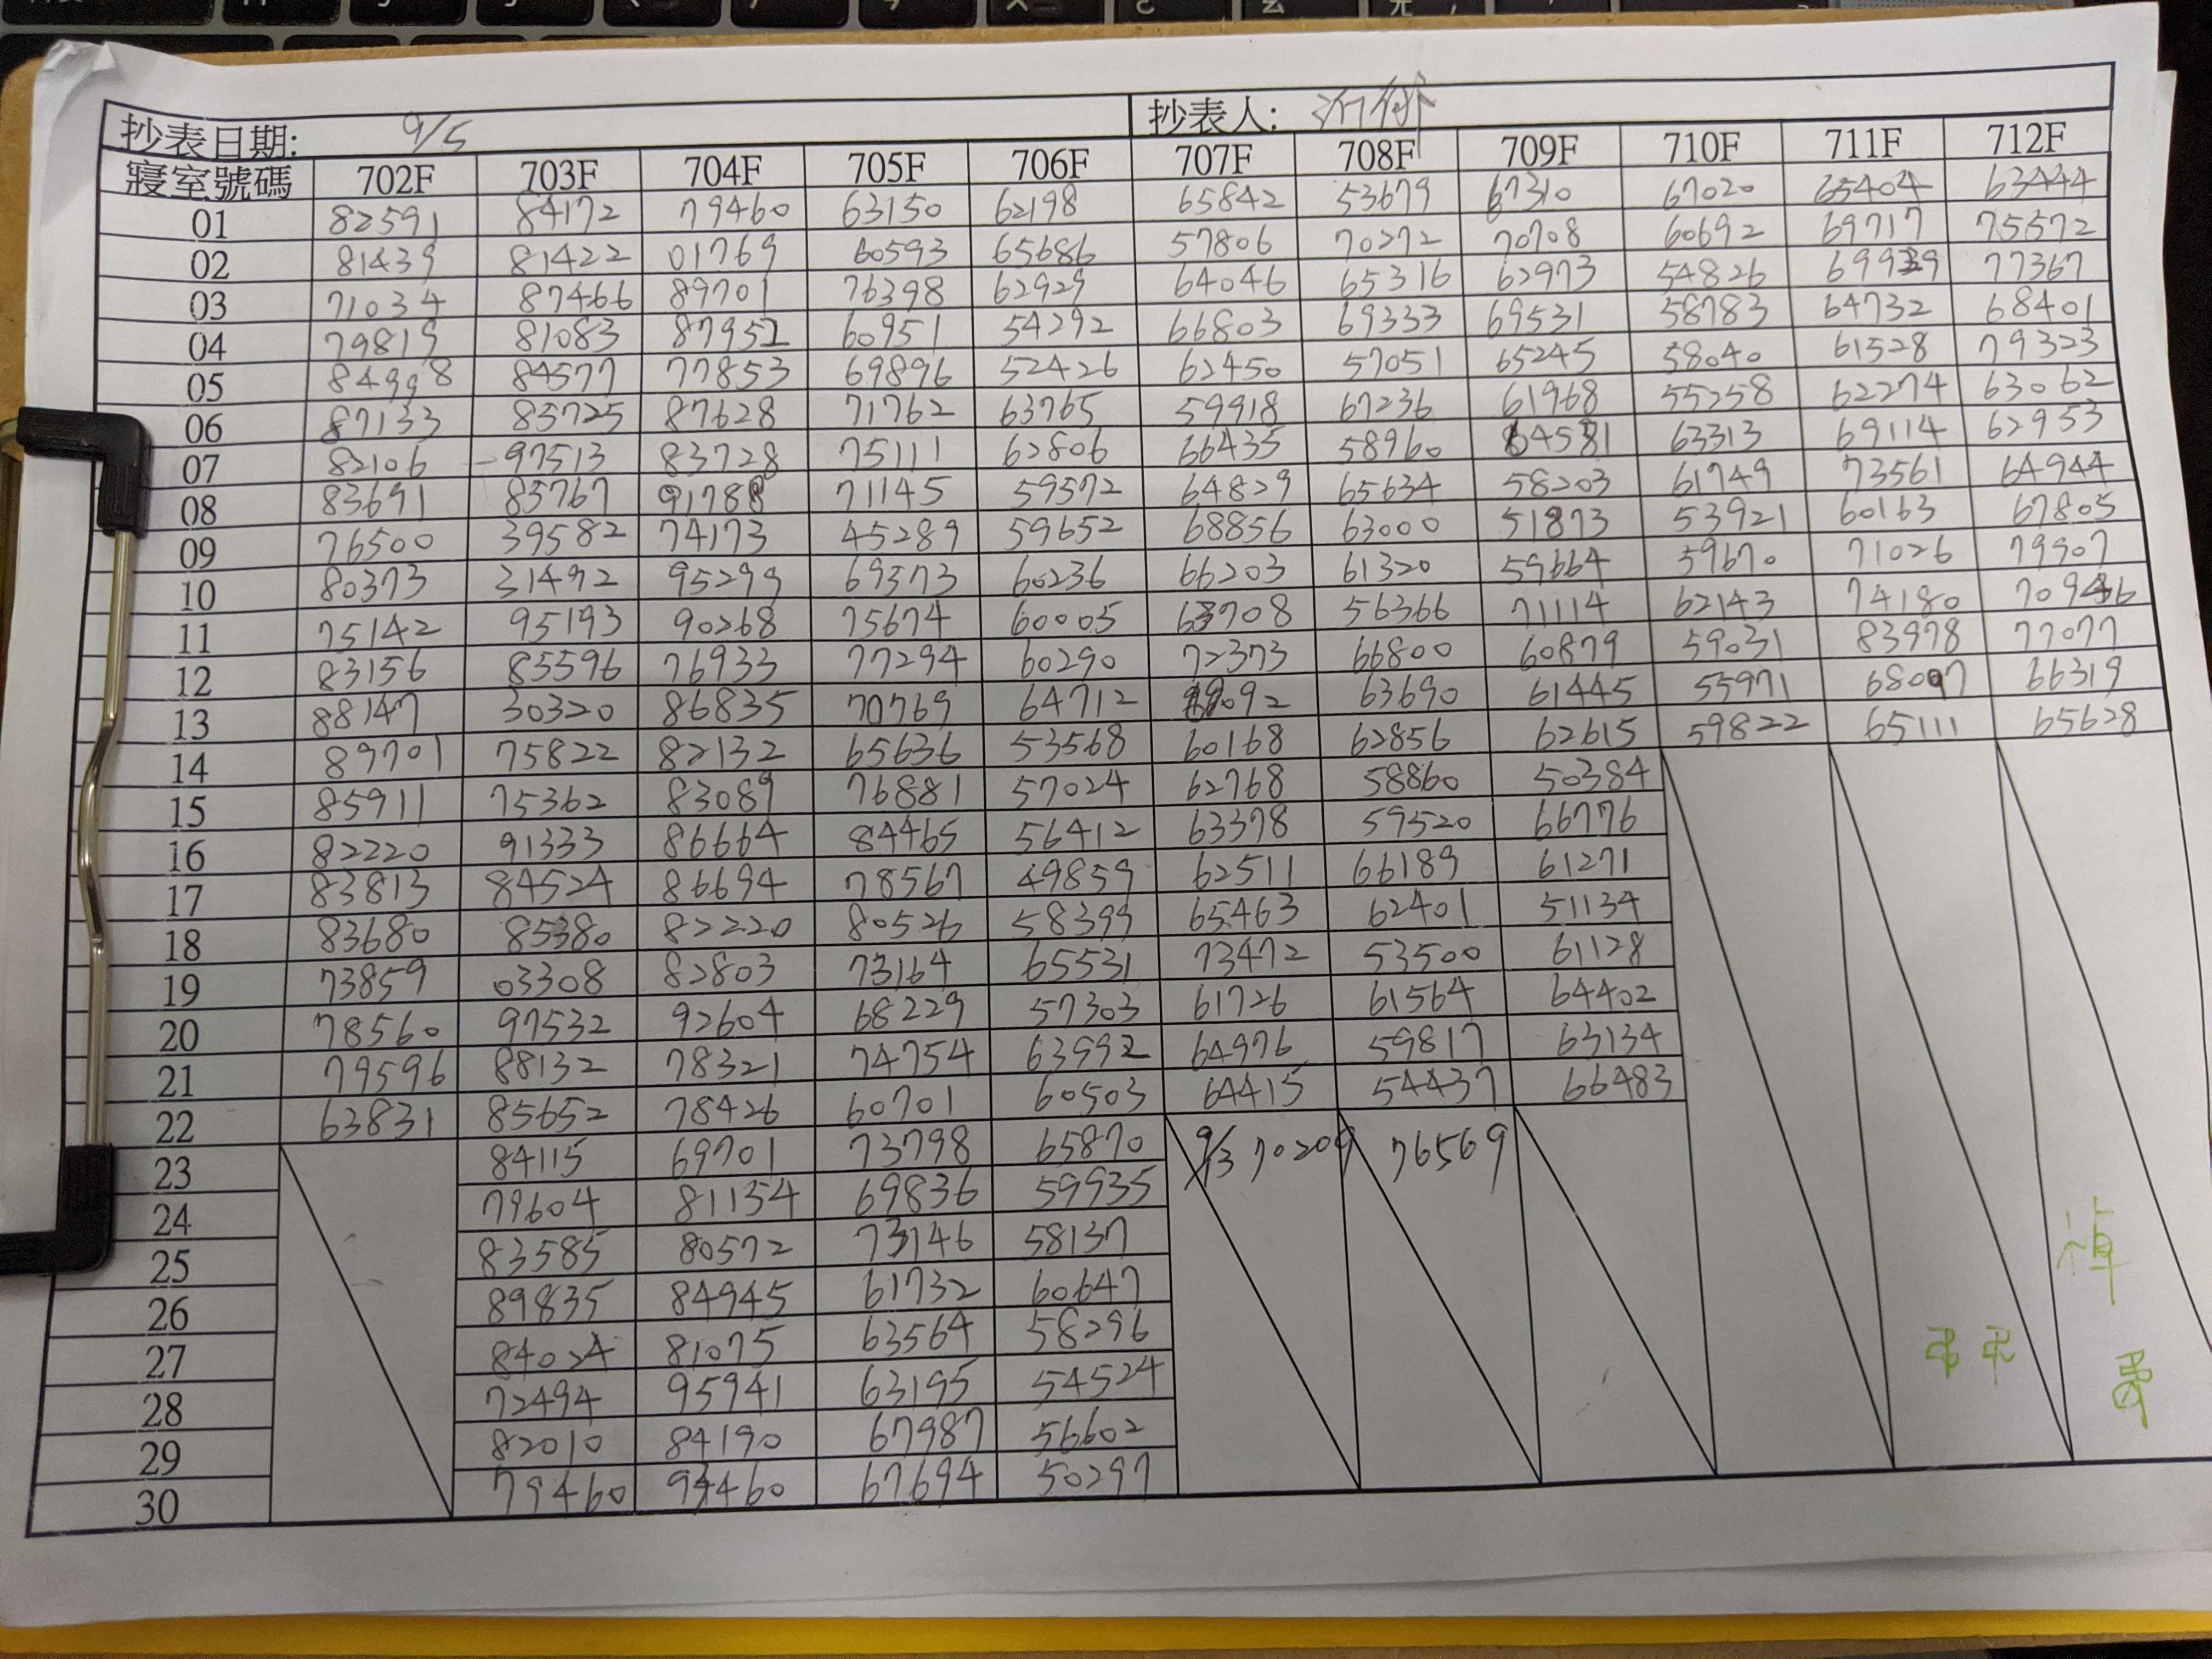 抄表日期: 9/5 抄表人:
寢室號碼 702F 703F 704F 705F 706F 707F 708F 709F 710F 711F 712F
01 82591 84172 79460 63150 62198 65842 53679 67310 67020 65404 63444
02 81439 81422 01769 60593 65686 57806 70272 70708 60692 69717 75572
03 71034 87466 89701 76398 62929 64046 65316 62973 54826 69939 77367
04 79819 81083 87952 60951 54292 66803 69333 69531 58783 64732 68401
05 84998 84577 77853 69896 52426 62450 57051 65245 58040 61528 79323
06 87133 85725 87628 71762 63765 59918 67236 61968 55258 62274 63062
07 82106 97513 83728 75111 62806 66435 58960 64581 63313 69114 62953
08 83691 85767 91788 71145 59572 64829 65634 58203 61749 73561 64944
09 76500 39582 74173 45289 59652 68856 63000 51873 53921 60163 67805
10 80373 31492 95299 69573 60236 66203 61320 59664 59670 71026 79907
11 75142 95193 90268 75674 60005 63708 56366 71114 62143 74180 70946
12 83156 85596 76933 77294 60290 72373 66800 60879 59031 83978 77077
13 88147 30320 86835 70769 64712 63690 61445 55971 68097 66319
14 89701 75822 82132 65636 53568 60168 62856 62615 59822 65111 65628
15 85911 75362 83089 76881 57024 62768 58860 50384
16 82220 91333 86664 84465 56412 63378 59520 66776
17 83813 84524 86694 78567 49859 62511 66189 61271
18 83680 85380 82220 80526 58399 65463 62401 51134
19 73859 03308 82803 73164 65531 73472 53500 61128
20 78560 97532 92604 68229 57303 61726 61564 64402
21 79596 88132 78321 74754 63992 64976 59817 63134
22 63831 85652 78426 60701 60503 64415 54437 66483
23 84115 69701 73798 65870 9/3 70209 76569
24 79604 81154 69836 59935
25 83585 80572 73146 58137
26 89835 84945 61732 60647
27 84024 81075 63564 58296
28 72494 95941 63195 54524
29 82010 84190 67987 56602
30 79460 94460 67694 50297